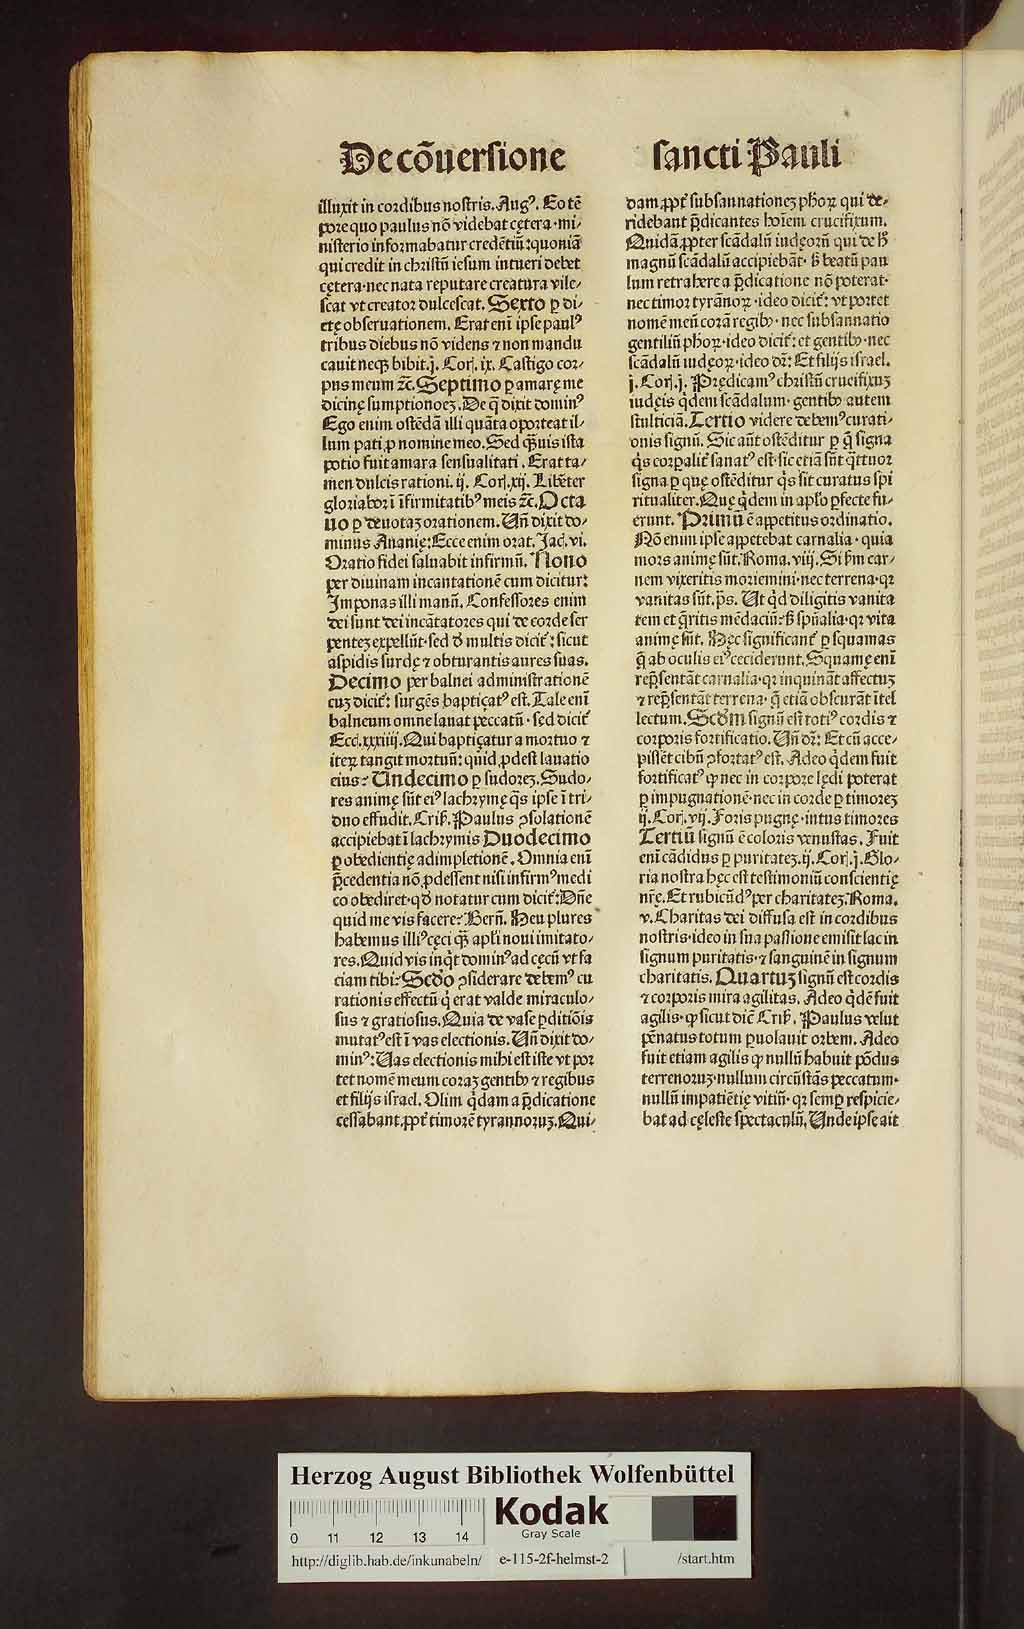 De cōuersione sancti Pauli
illuxit in cordibus nostris. Augꝰ. Eo tē
pore quo paulus nō videbat cętera·mi/
nisterio informabatur credētiū: quoniā
qui credit in christū iesum intueri debet
cętera·nec nata reputare creatura viles/
scat vt creator dulcescat. Sexto ꝑ di/
etę obseruationem. Erat enī ipse paulꝰ
tribus diebus nō videns ⁊ non mandu
cauit neqꝫ bibit. j. Corj. ix. Castigo cor/
pus meum ⁊c̄. Septimo ꝑ amarę me
dicinę sumptionoeꝫ. De q̄ dixit dominꝰ
Ego enim ostēdā illi quāta oporteat il/
lum pati ꝓ nomine meo. Sed qꝫuis ista
potio fuit amara sensualitati. Erat ta/
men dulcis rationi. ij. Corj. xij. Libēter
gloriabor ī īfirmitatibꝰ meis ⁊c̄. Octa
uo ꝑ deuotaꝫ orationem. Uñ dixit do/
minus Ananię: Ecce enim orat. Jac. vi.
Oratio fidei saluabit infirmū. Nono
per diuinam incantationē cum dicitur:
Jmponas illi manū. Confessores enim
dei sunt dei incātatores qui de corde ser
penteꝫ expellūt·sed ď multis dicit̄: sicut
aspidis surdę ⁊ obturantis aures suas.
Decimo per balnei administrationē
cuꝫ dicit̄: surgēs baptiçatꝰ est. Tale enī
balneum omne lauat peccatū·sed dicit̄
Ecc̄. xxxiiij. Qui baptiçatur a mortuo ⁊
iteꝝ tangit mortuū: quid ꝓdest lauatio
eius? Undecimo ꝑ sudoreꝫ. Sudo/
res animę sūt eiꝰ lachrymę q̄s ipse ī tri/
duo effudit. Criß. Paulus ꝯsolationē
accipiebat ī lachrymis Duodecimo
ꝑ obedientię adimpletionē. Omnia enī
p̄cedentia nō ꝓdessent nisi infirmꝰ medi
co obediret·qď notatur cum dicit̄: Dñe
quid me vis facere? Berñ. Heu plures
habemus illiꝰ cęci qꝫ apl̄i noui imitato/
res. Quid vis inq̄t dominꝰ ad cecū vt fa
ciam tibi? Scďo ꝯsiderare debemꝰ cu
rationis effectū q̇ erat valde miraculo/
sus ⁊ gratiosus. Quia de vase ꝑditiōis
mutatꝰ est ī vas electionis. Uñ dixit do/
minꝰ: Uas electionis mihi est iste vt por
tet nomē meum coraꝫ gentibꝰ ⁊ regibus
et filijs israel. Olim q̇dam a p̄dicatione
cessabant ꝓpt̄ timorē tyrannoruꝫ. Qui/
dam ꝓpt̄ subsannationeꝫ ph̄oꝝ qui de/
ridebant p̄dicantes hoīem crucifixum.
Quidā ꝓpter scādalū iudęorū qui de h̄
magnū scādalū accipiebāt·ß beatū pau
lum retrahere a p̄dicatione nō poterat·
nec timor tyrānoꝝ·ideo dicit̄: vt portet
nomē meū corā regibꝰ·nec subsannatio
gentiliū ph̄oꝝ·ideo dicit̄: et gentibꝰ·nec
scādalū iudęoꝝ·ideo dr̄: Et filijs israel.
j. Corj. j. Prędicamꝰ christū crucifixuꝫ
iudęis q̇dem scādalum·gentibꝰ autem
stulticiā. Tertio videre debemꝰ curati/
onis signū. Sic aūt ostēditur ꝑ q̄ signa
q̇s corꝑalit̄ sanatꝰ est·sic etiā sūt q̄ttuor
signa ꝑ quę ostēditur q̇s sit curatus spi
ritualiter. Quę q̇dem in apl̄o ꝑfecte fu/
erunt. Primū ē appetitus ordinatio.
Nō enim ipse appetebat carnalia·quia
mors animę sūt. Roma. viij. Si ẜm car/
nem vixeritis moriemini·nec terrena·qꝛ
vanitas sūt. p̄s. Ut q̇d diligitis vanita
tem et q̄ritis mēdaciū? ß spūalia·qꝛ vita
animę sūt. Hęc significant̄ ꝑ squamas
q̄ ab oculis eiꝰ ceciderunt. Squamę enī
rep̄sentāt carnalia·qꝛ inquināt affectuꝫ
⁊ rep̄sentāt terrena·q̄ etiā obscurāt ītel
lectum. Scďm signū est totiꝰ cordis ⁊
corporis fortificatio. Uñ dr̄: Et cū acce/
pisset cibū ꝯfortatꝰ est. Adeo q̇dem fuit
fortificatꝰ ꝙ nec in corpore lędi poterat
ꝑ impugnationē·nec in corde ꝑ timoreꝫ
ij. Corj. vij. Foris pugnę·intus timores
Tertiū signū ē coloris venustas. Fuit
enī cādidus ꝑ puritateꝫ. ij. Corj. j. Glo/
ria nostra hęc est testimoniū conscientię
nr̄ę. Et rubicūdꝰ per charitateꝫ. Roma.
v. Charitas dei diffusa est in cordibus
nostris·ideo in sua passione emisit lac in
signum puritatis·⁊ sanguinē in signum
charitatis. Quartuꝫ signū est cordis
⁊ corporis mira agilitas. Adeo q̇dē fuit
agilis·ꝙ sicut dič Criß. Paulus velut
pēnatus totum ꝑuolauit orbem. Adeo
fuit etiam agilis ꝙ nullū habuit pōdus
terrenoruꝫ·nullum circūstās peccatum·
nullū impatiētię vitiū·qꝛ semꝑ respicie/
bat ad cęleste spectaculū. Unde ipse ait
Herzog August Bibliothek Wolfenbüttel
0 11 12 13 14
Kodak
Gray Scale
http://diglib.hab.de/inkunabeln/ e-115-2f-helmst-2 /start.htm